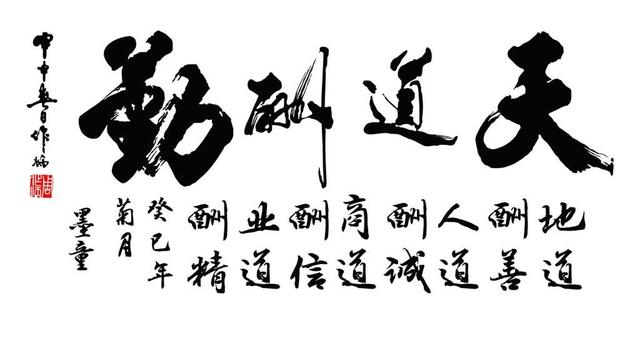 天道酬勤
地道酬善
人道酬诚
商道酬信
业道酬精
癸巳年
菊月
墨童
甲申春日作